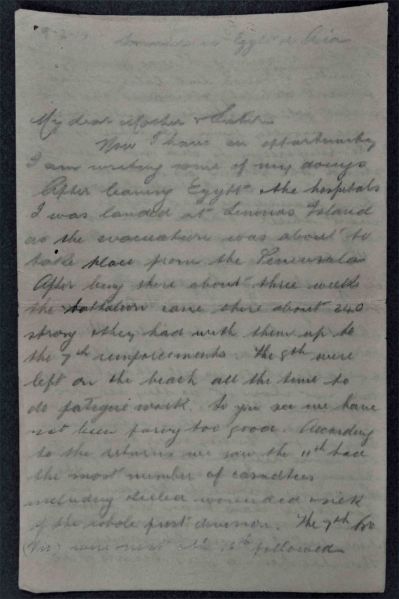 in Egypt or
My dear Mother &
Now I have an opportunity
I am writing some of my doings
After leaving Egypt & the hospitals
I was landed at Limnos Island
as the evacuation was about to
take place from the Peninsula
After being there about three weeks
the battalion came there about 240
strong & they had with them up to
the 7th reinforcements. The 8th were
left on the beach all the time to
do fatigue work. So you see we have
not been faring too good. According
to the returns we saw the 11th had
the most number of casualties
including killed wounded & sick
of the whole first division. The 9th
were next the followed